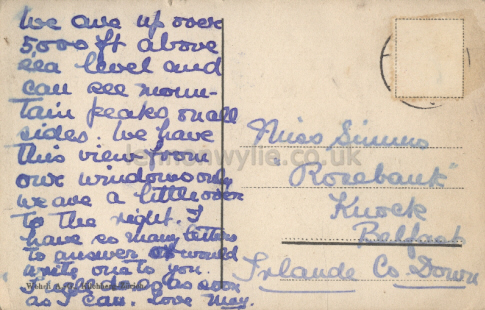 We are up over
5,000 ft above
sea level and
can see moun-
tain peaks on all
sides. We have
this view from
our windows only
we are a little over
to the right. I
have so many letters
to answer or would
write one to you.
as soon
as I can. Love May.
Miss Simms
"Rosebank"
Knock
Belfast
Irlande Co Down